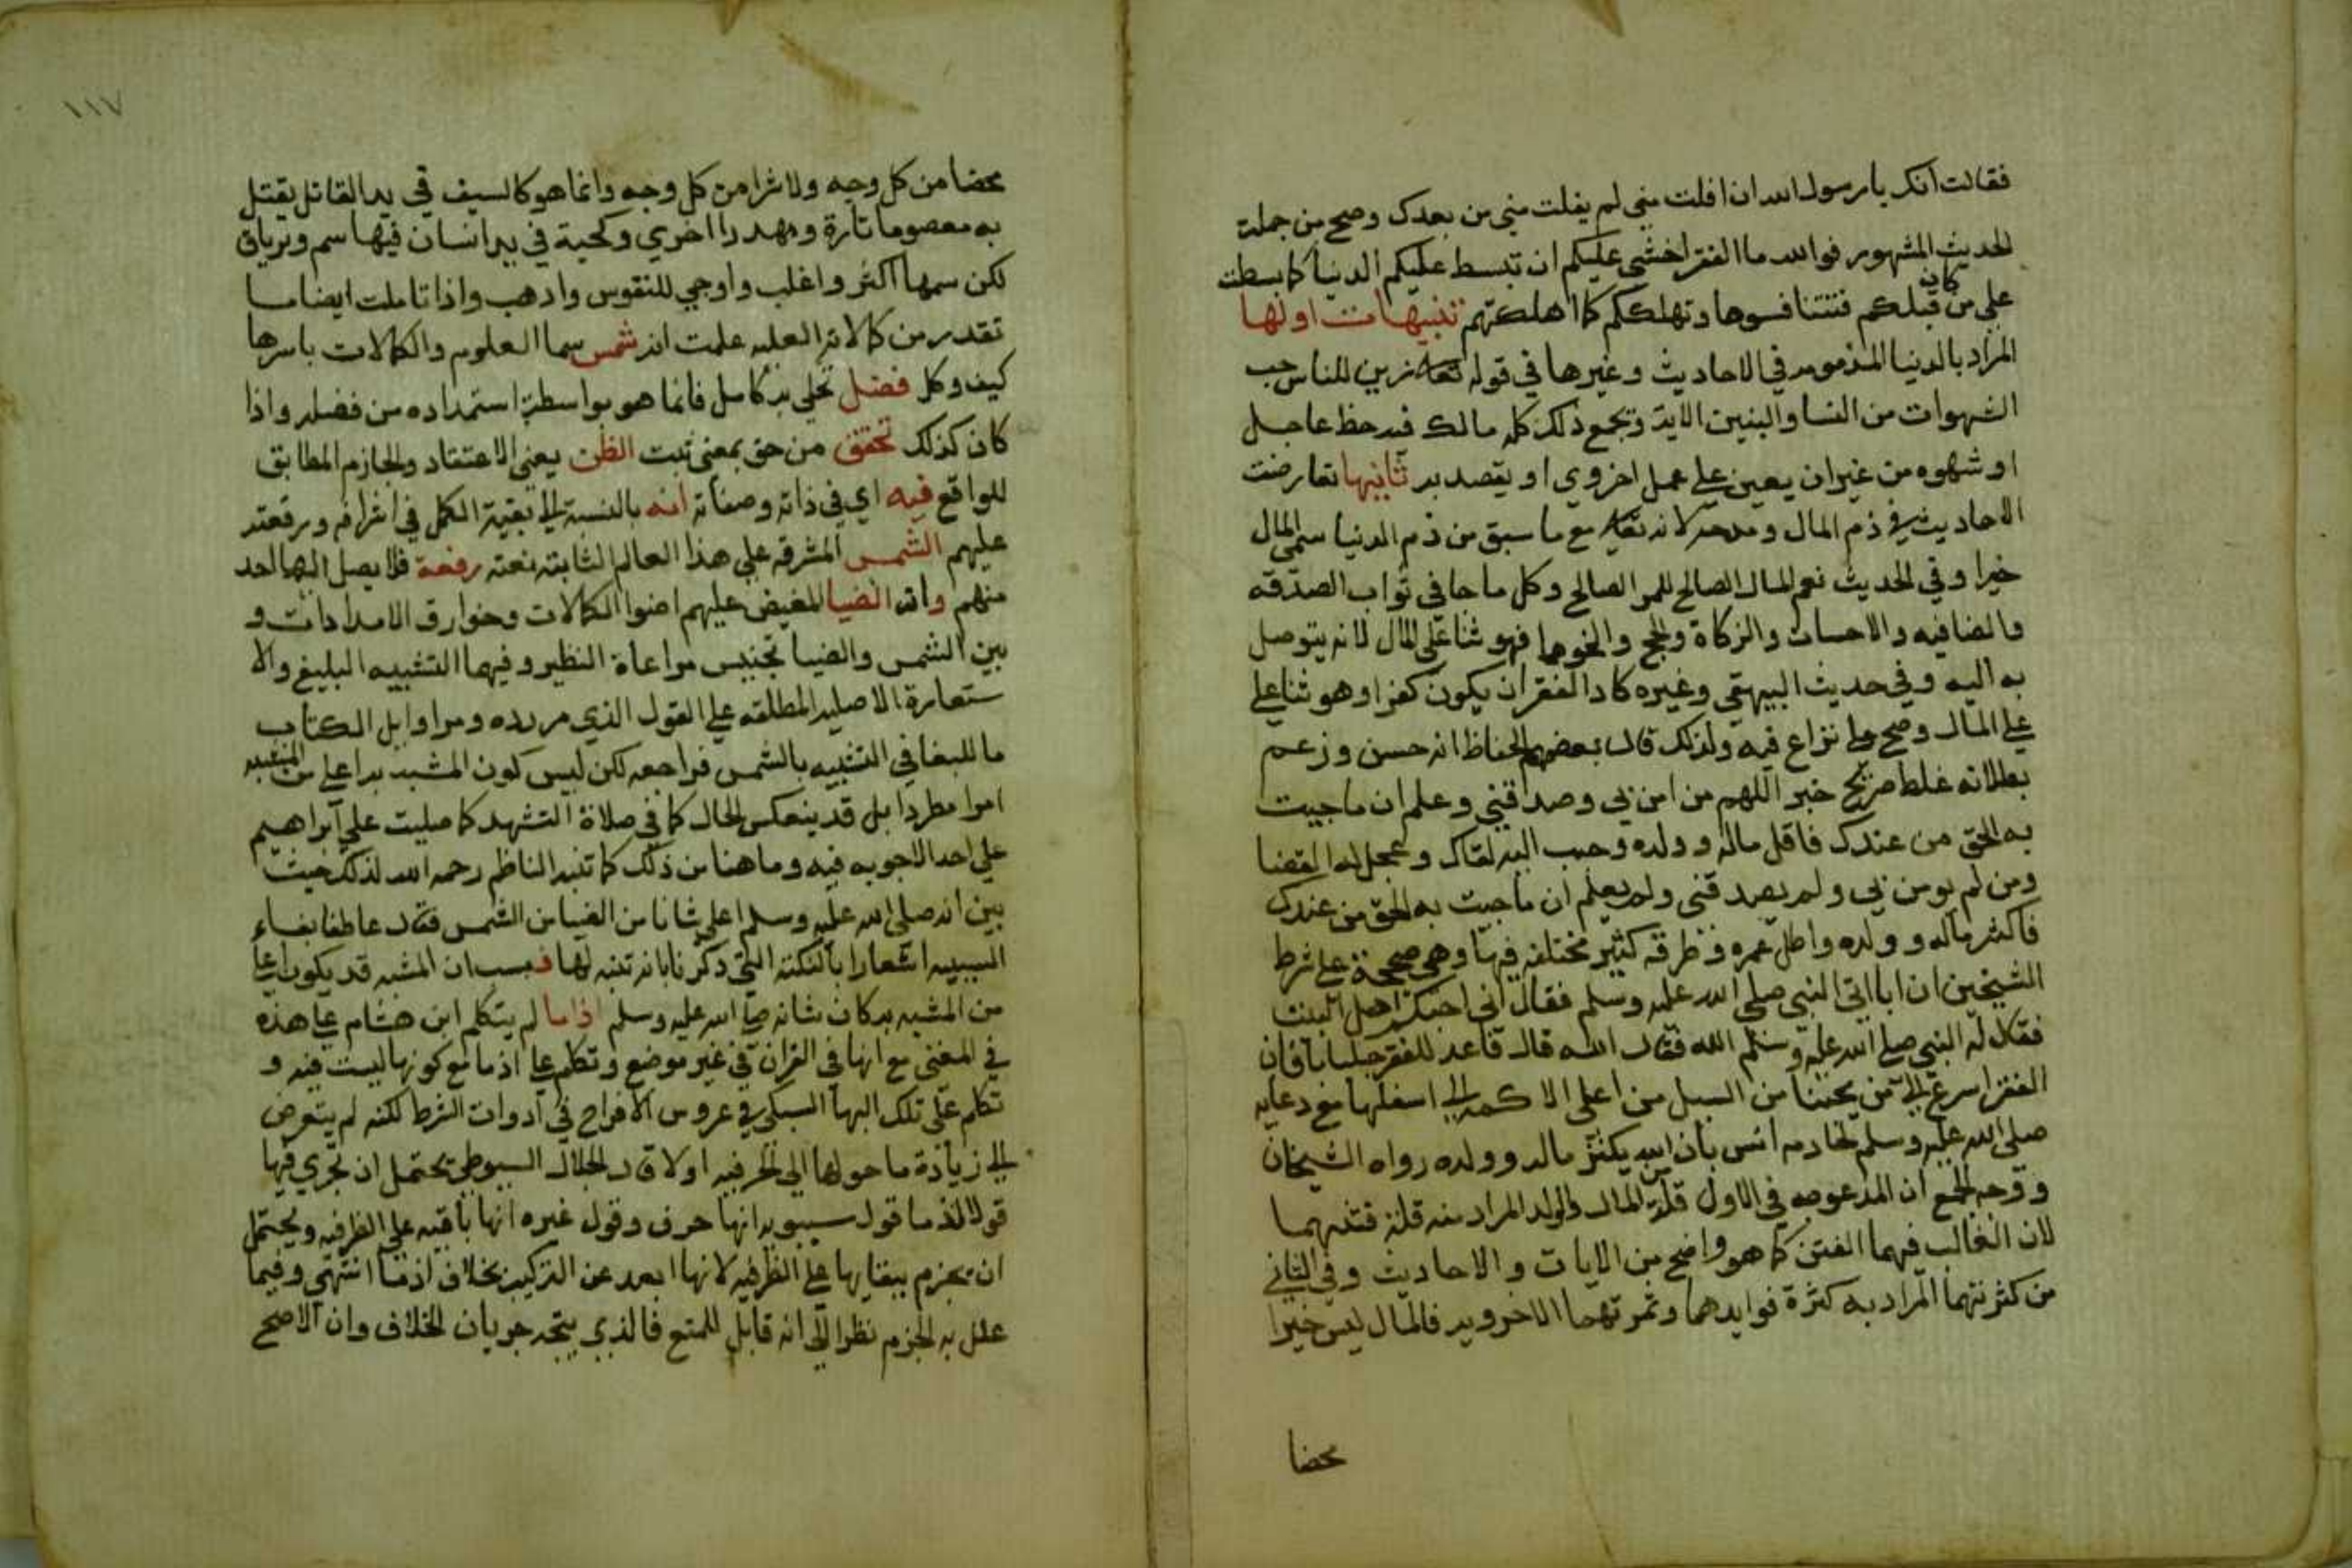 فقالت انك يا رسول الله ان افلت مني لم يفلت مني من بعدك وصح من جملة
الحديث المشهور فوالله ما الفقر اخشي عليكم ان تبسط عليكم الدنيا كما بسطت
علي من كان قبلكم فتتنافسوها وتهلككم كما اهلكتهم تنبيهات اولها
المراد بالدنيا المذمومه في الاحاديث وغيرها في قوله تعالى زين للناس حب
الشهوات من النسا والبنين الاية ويجمع ذلك كله مالك فيه حظ عاجل
او شهوه من غير ان يعين علي عمل اخروي او يقصد به ثانيها تعارضت
الاحاديث في ذم المال ومدحه لانه تعالى مع ما سبق من ذم الدنيا سمي المال
خيرا وفي الحديث نعم المال الصالح للمر الصالح وكل ما جا في ثواب الصدقه
والضافيه والاحسان والزكاة والحج ونحوها فهو ثنا علي المال لانه يتوصل
به اليه وفي حديث البيهقي وغيره كاد الفقر ان يكون كفرا وهو ثنا علي
علي المال وصح علي نزاع فيه ولذلك قال بعض الحفاظ انه حسن وزعم
بطلانه غلط صريح خبر اللهم من امن بي وصدقني وعلم ان ما جيت
به الحق من عندك فاقل ماله وولده وحبب اليه لقاك وعجل له القضا
ومن لم يومن بي ولم يصدقني ولم يعلم ان ما جيت به الحق من عندك
فاكثر ماله وولده واطل عمره وطرقه كثير مختلفه فيها وهي صحيحة علي شرط
الشيخين ان ابا اتي النبي صلي الله عليه وسلم فقال اني احبكم اهل البيت
فقال له النبي صلي الله عليه وسلم الله فقال الله قال فاعد للفقر جلبابا فان
الفقر اسرع الي من يحبنا من السيل من اعلي الاكمه الي اسفلها مع دعايه
صلي الله عليه وسلم لخادمه انس بان الله يكثر ماله وولده رواه الشيخان
ووجه الجمع ان المدعو به في الاول قلة المال والولد المراد منه قلة فتنهما
لان الغالب فيهما الفتن كما هو واضح من الايات والاحاديث وفي الثاني
من كثرتهما المراد به كثرة فوايدهما وثمرتهما الاخرويه فالمال ليس خيرا
محضا
١١٧
محضا من كل وجه ولا شرا من كل وجه وانما هو كالسيف في يد القاتل يقتل
به معصوما تارة ومهدرا اخري وكحية في يد انسان فيها سم وترياق
لكن سمها اكثر واغلب واوجي للنفوس واذهب واذا تاملت ايضا ما
تقدر من كمالاته العليه علمت انه شمس سما العلوم والكمالات باسرها
كيف وكل فضل تحلي به كامل فانما هو بواسطة استمداده من فضله واذا
كان كذلك تحقق من حق بمعني ثبت الظن يعني الاعتقاد والجازم المطابق
للواقع فيه اي في ذاته وصفاته انه بالنسبة الي بقية الكمل في اشرافه ورفعته
عليهم الشمس المشرقه علي هذا العالم الثابته نعته رفعة فلا يصل اليها احد
منهم وانه الضيا المفيض عليهم اضوا الكمالات وخوارق الامدادات و
بين الشمس والضيا تجنيس مراعاة النظير وفيهما التشبيه البليغ والا
ستعارة الاصليه المطلقه علي القول الذي مر رده ومر اوايل الكتاب
ما للبغا في التشبيه بالشمس فراجعه لكن ليس كون المشبه به اعلي من المشبه
امرا مطردا بل قد ينعكس الحال كما في صلاة التشهد كما صليت علي ابراهيم
علي احد الاجوبه فيه وما هنا من ذلك كما تنبه الناظم رحمه الله لذلك حيث
بين انه صلي الله عليه وسلم اعلي شانا من الضيا من الشمس فقال عاطفا بفاء
السببيه اشعارا بالنكته التي ذكرنا بانه تنبه لها فبسبب ان المشبه قد يكون اعلي
من المشبه به كان شانه صلي الله عليه وسلم اذا ما لم يتكلم ابن هشام علي هذه
في المغني مع انها في القران في غير موضع وتكلم علي اذ ما مع كونها ليست فيه و
تكلم علي تلك البها السبكي في عروس الافراح في ادوات الشرط لكنه لم يتعرض
الي زيادة ما حولها الي الحرفيه اولا قال الجلال السيوطي يحتمل ان تجري فيها
قولا اذ ما قول سيبويه انها حرف وقول غيره انها باقيه علي الظرفيه ويحتمل
ان يجزم ببقايها علي الظرفيه لانها ابعد عن التركيب بخلاف اذ ما انتهي وفيما
علل به الجزم نظر الي انه قابل للمنع فالذي يتجه جريان الخلاف وان الاصح